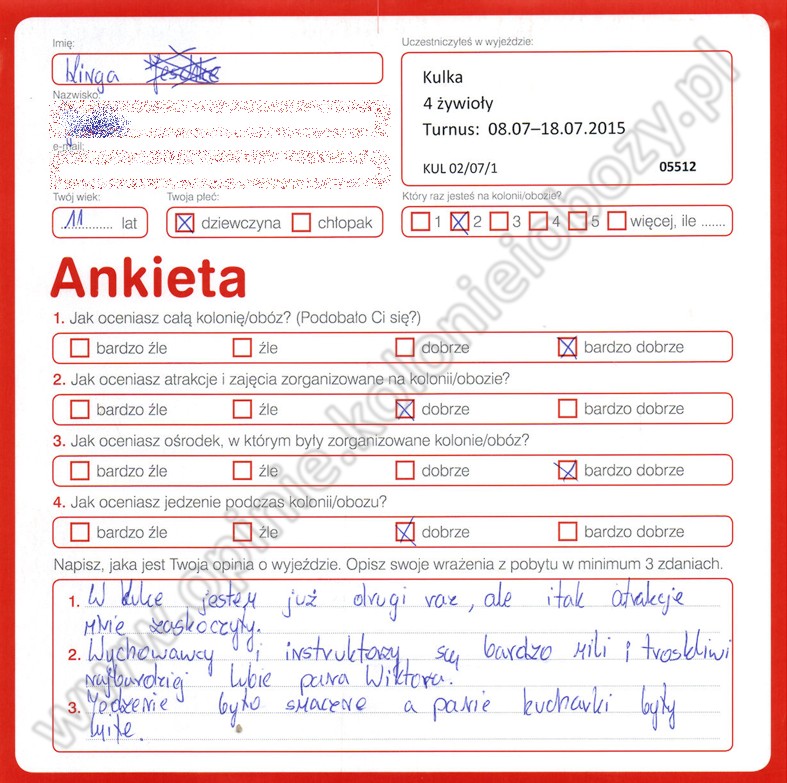 Imię:
Kinga
Uczestniczyłeś w wyjeździe:
Kulka
4 żywioły
Turnus: 08.07–18.07.2015
KUL 02/07/1 05512
Nazwisko
e-mail:
Twój wiek:
11 lat
Twoja płeć:
dziewczyna chłopak
Który raz jesteś na kolonii/obozie?
1 2 3 4 5 więcej, ile .......
Ankieta
1. Jak oceniasz całą kolonię/obóz? (Podobało Ci się?)
bardzo źle źle dobrze bardzo dobrze
2. Jak oceniasz atrakcje i zajęcia zorganizowane na kolonii/obozie?
bardzo źle źle dobrze bardzo dobrze
3. Jak oceniasz ośrodek, w którym były zorganizowane kolonie/obóz?
bardzo źle źle dobrze bardzo dobrze
4. Jak oceniasz jedzenie podczas kolonii/obozu?
bardzo źle źle dobrze bardzo dobrze
Napisz, jaka jest Twoja opinia o wyjeździe. Opisz swoje wrażenia z pobytu w minimum 3 zdaniach.
1. W kulce jestem już drugi raz, ale itak atrakcje
mnie zaskoczyły.
2. Wychowawcy i instruktorzy są bardzo mili i troskliwi
najbardziej lubie pana Wiktora.
3. Jedzenie było smaczne a panie kucharki były
miłe.
www.opinie.kolonieiobozy.pl